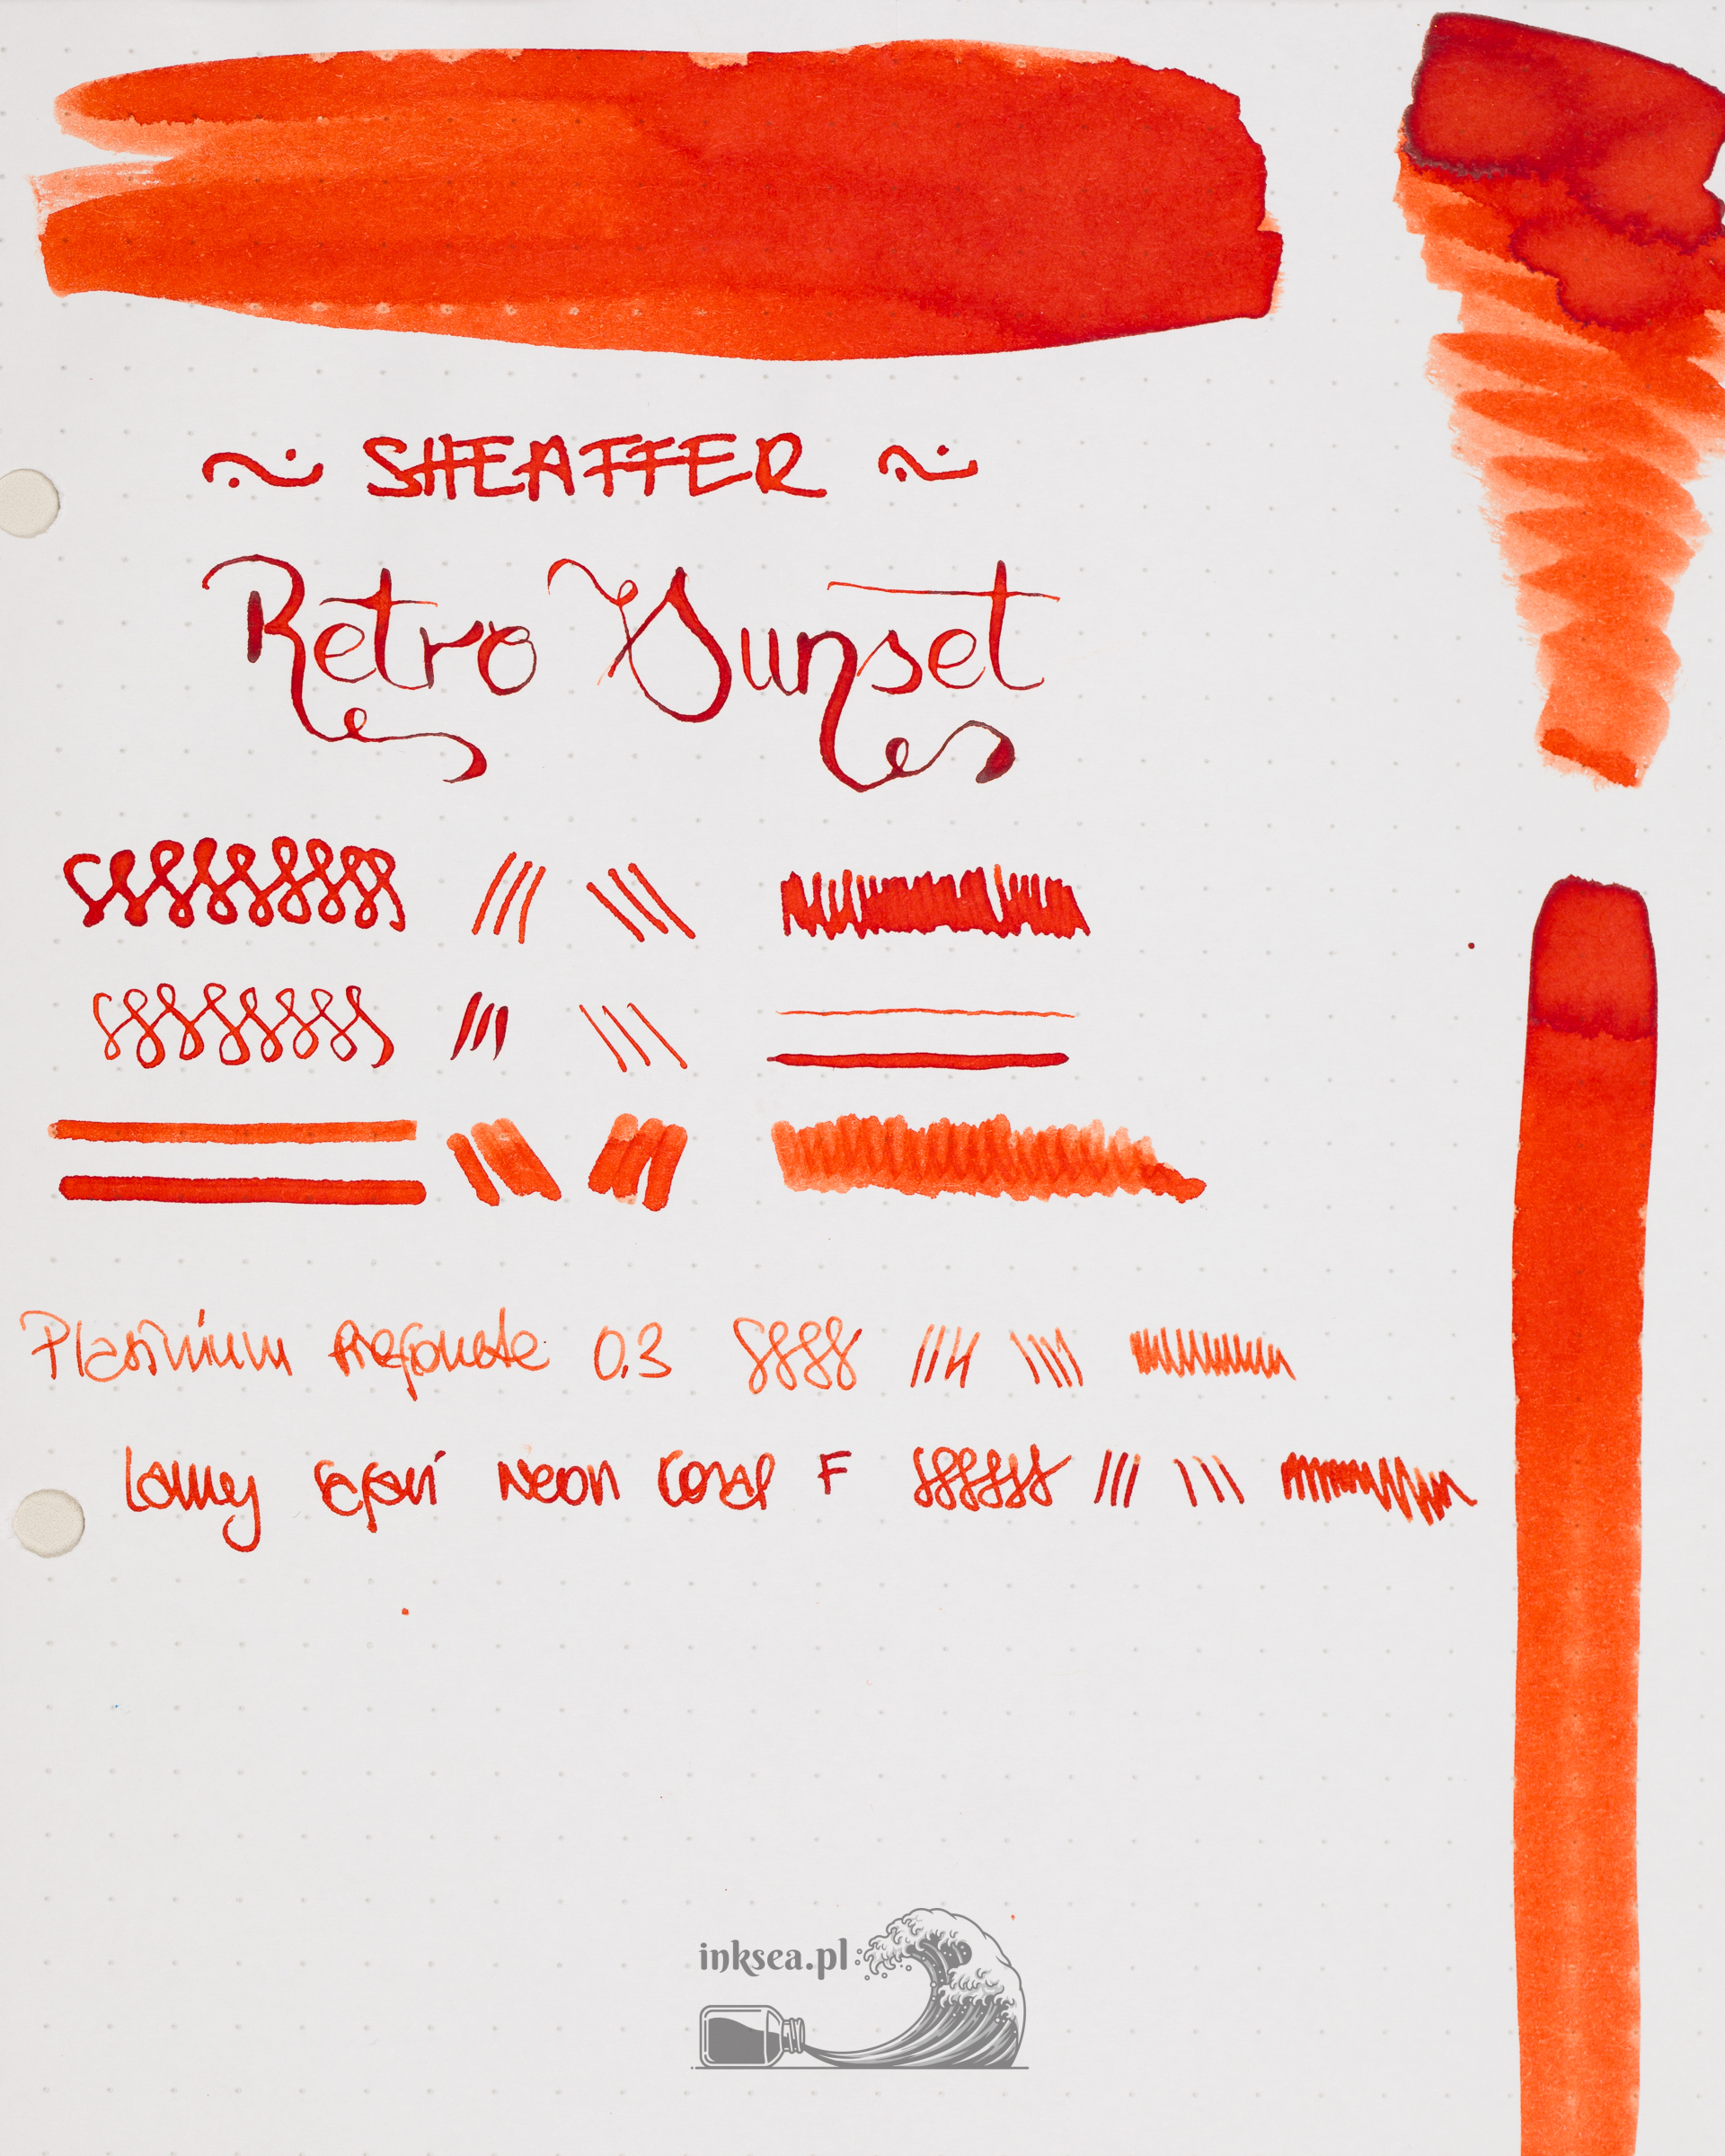 ~ SHEAFFER ~
Retro Sunset
Platinium Prefounte 0.3
Lamy safari Neon Coral F
inksea.pl